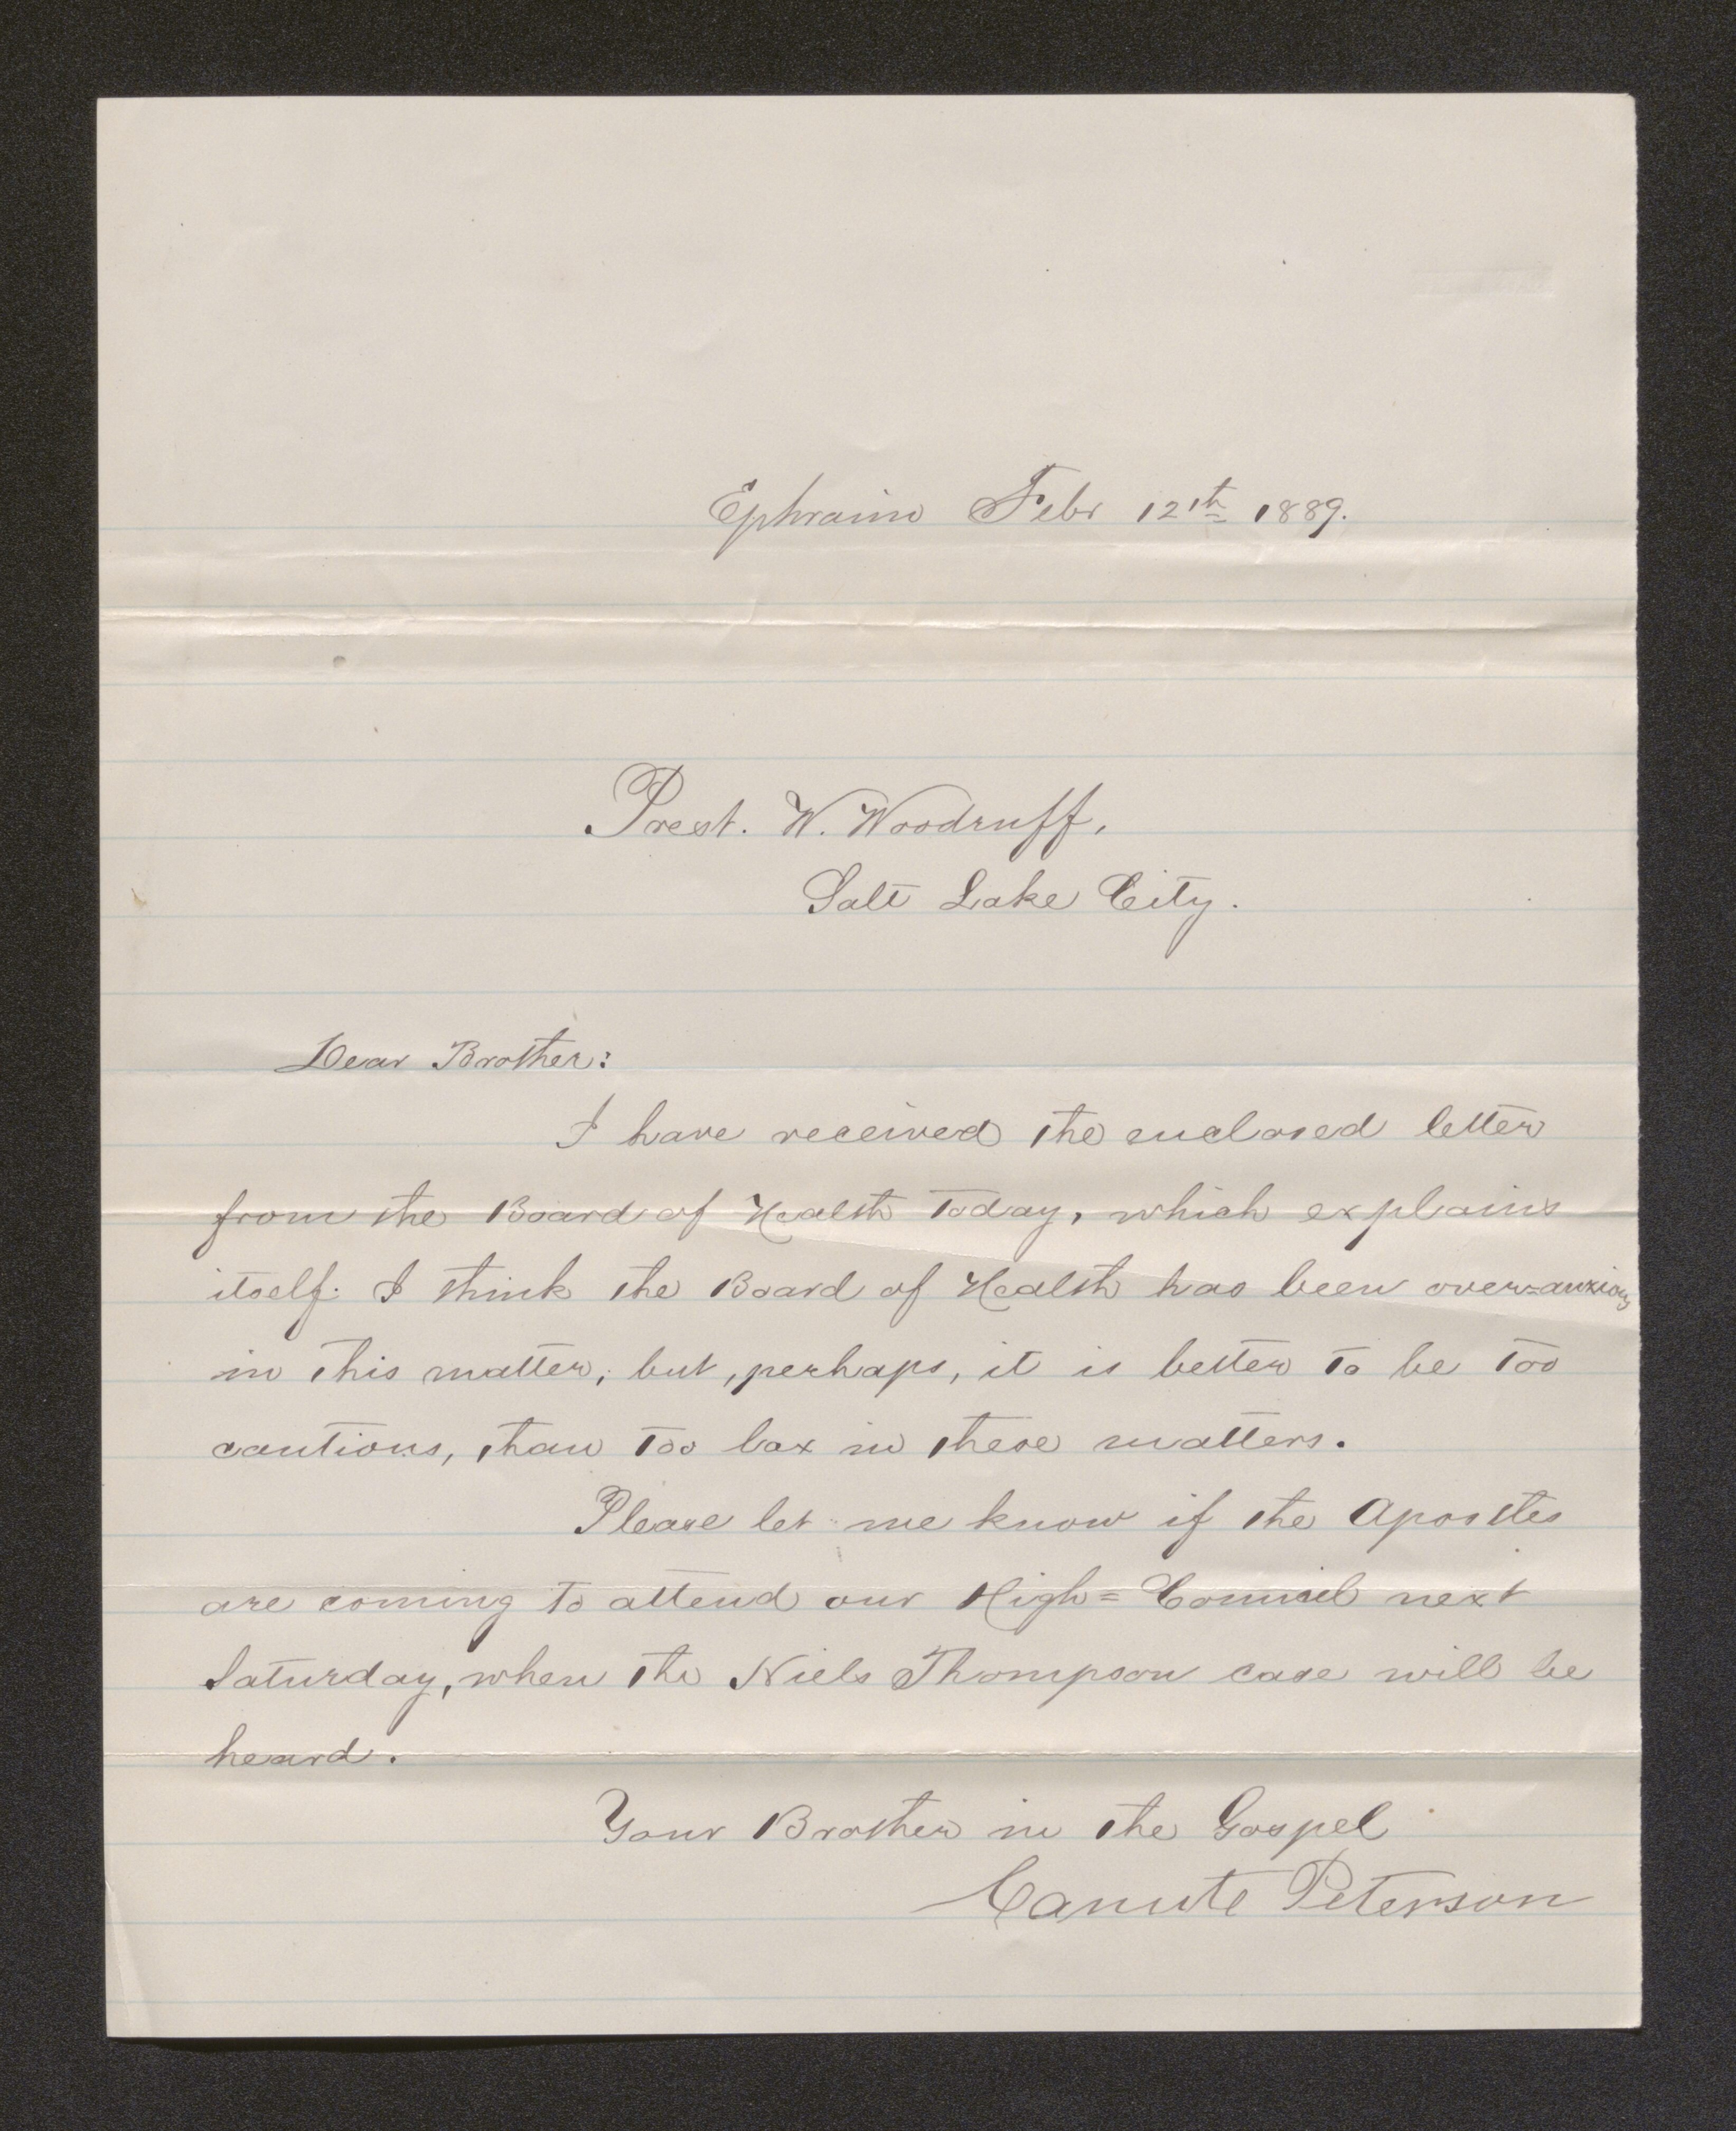 Ephraim Febr 12th 1889.
Prest. W. Woodruff,
Salt Lake City.
Dear Brother:
I have received the enclosed letter
from the Board of Health today, which explains
itself. I think the Board of Health has been over=anxious
in this matter; but, perhaps, it is better to be too
cautious, than too lax in these matters.
Please let me know if the Apostles
are coming to attend our High=Council next
Saturday, when the Niels Thompson case will be
heard.
Your Brother in the Gospel
Canute Peterson